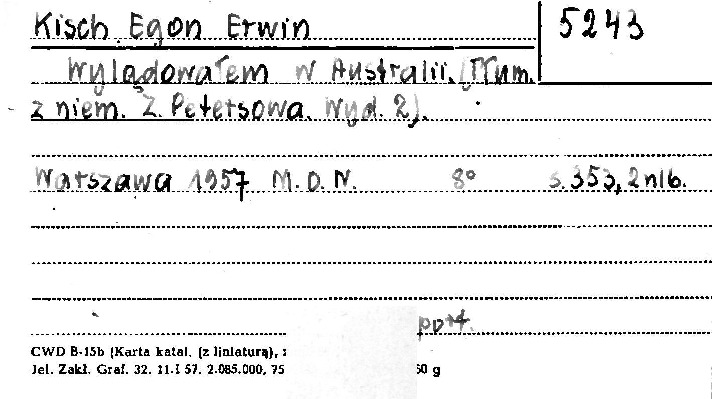 Kisch Egon Erwin 5243
Wylądowałem w Australii. (Tłum.
z niem. Z. Petersowa. Wyd. 2).
Warszawa 1957 M.O.N. 8° s. 353, 2 nlb.
CWD B-15b (Karta katal. (z liniaturą),
Jel. Zakł. Graf. 32. 11.I 57. 2.085.000, 75 60 g